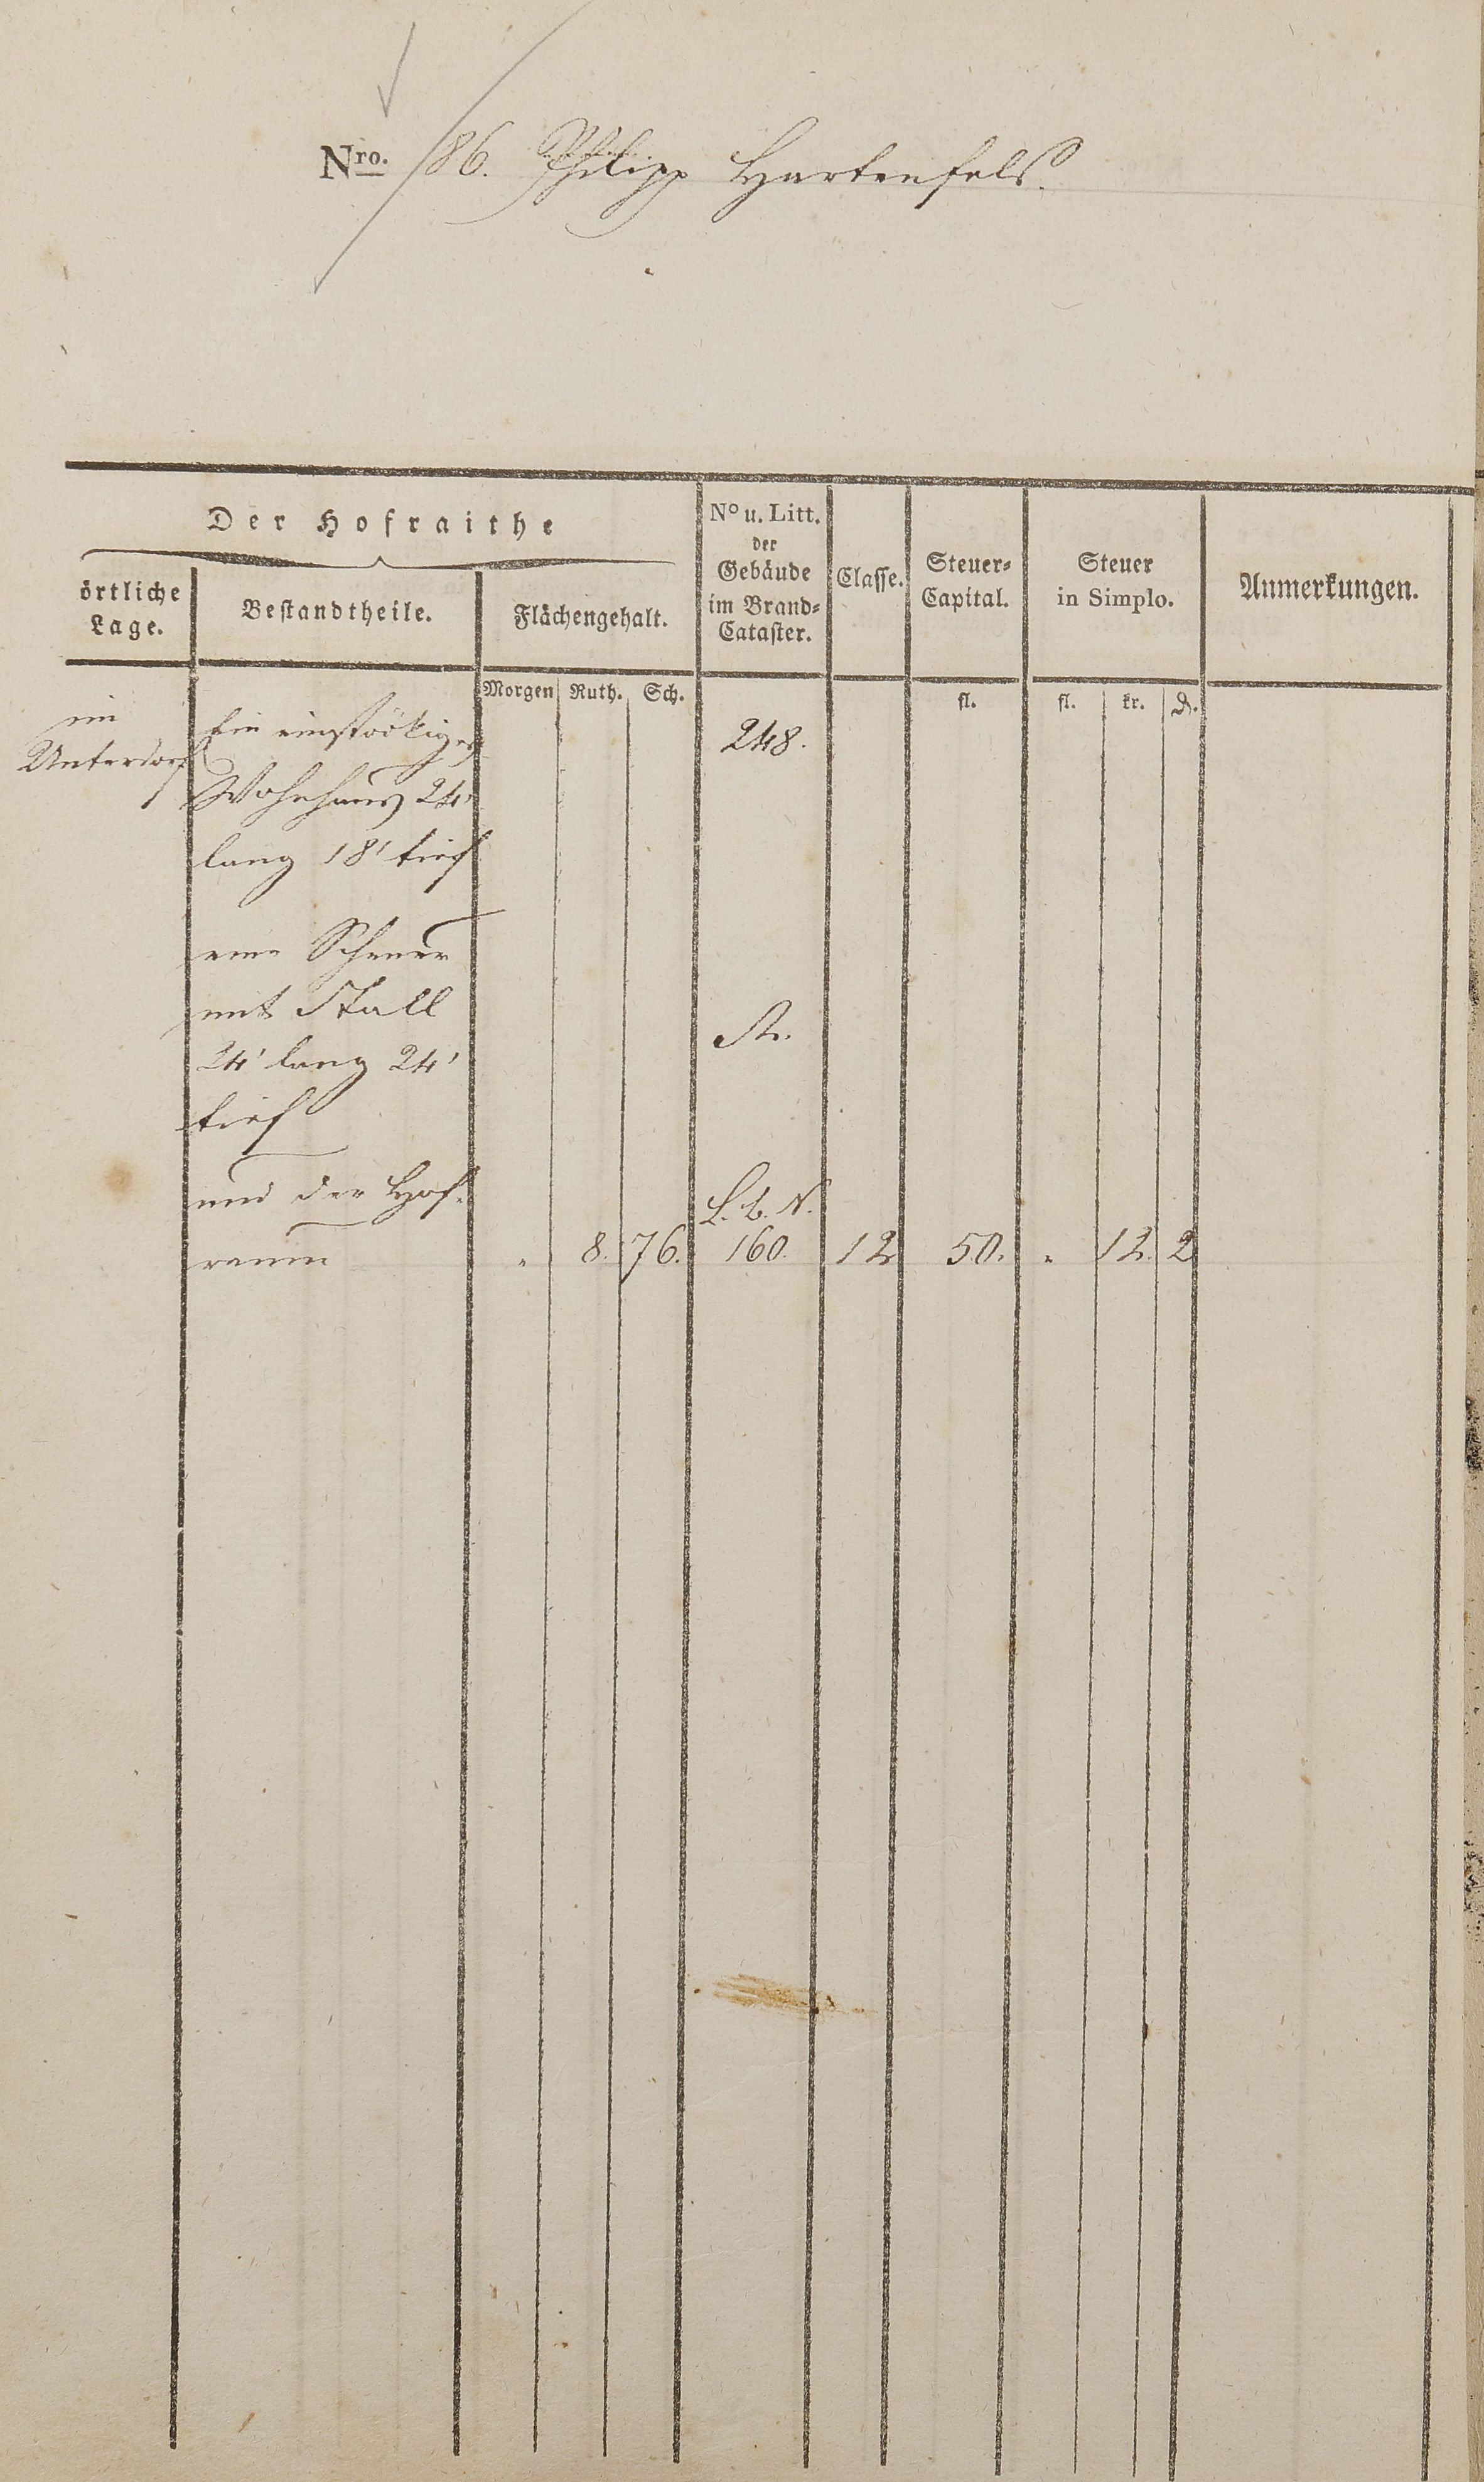 Nro. 186. Philipp Hartenfels.
Der Hofraithe
örtliche Lage.
Bestandtheile.
Flächengehalt.
No u. Litt. der Gebäude im Brand-Cataster.
Classe.
Steuer-Capital.
Steuer in Simplo.
Anmerkungen.
Morgen Ruth. Sch. fl. fl. kr. ₰.
im
Unterdorf
Ein einstöckiges 248.
Wohnhaus 24'
lang 18' tief
eine Scheuer
mit Stall
24' lang 24'
tief
und der Hof-
L. b. N.
raum " 8. 76. 160. 12 50. " 12. 2